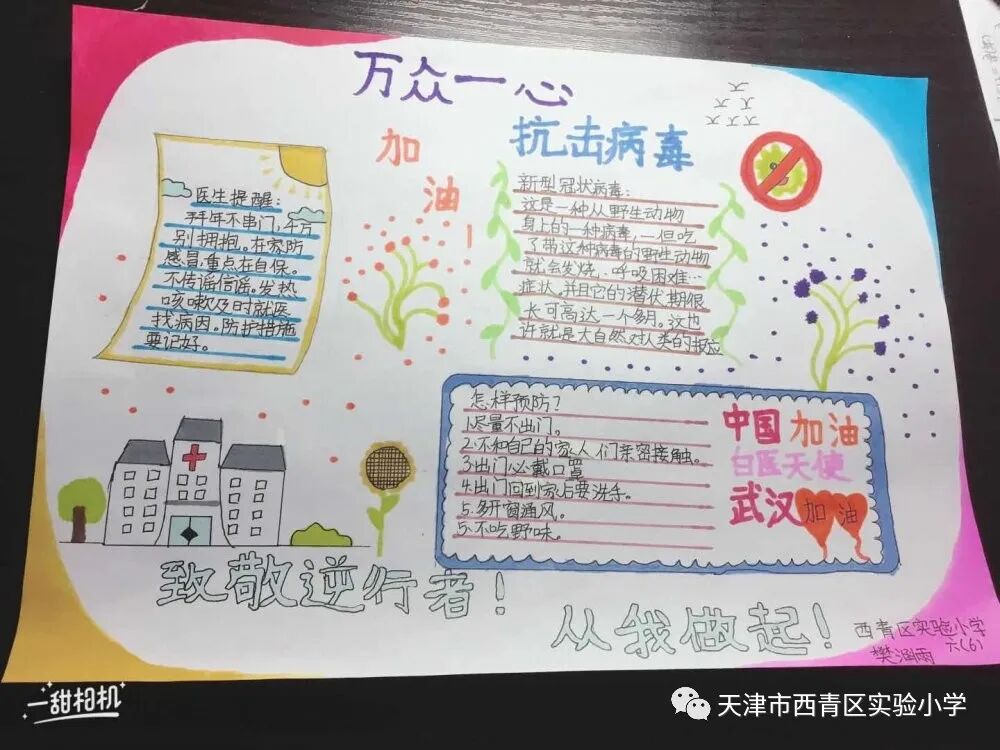 万众一心
加油！
抗击病毒
医生提醒：
拜年不串门，千万
别拥抱。在家防
感冒，重点在自保。
不传谣信谣。发热
咳嗽及时就医
找病因。防护措施
要记好。
新型冠状病毒：
这是一种从野生动物
身上的一种病毒，一但吃
了带这种病毒的野生动物
就会发烧、呼吸困难…
症状，并且它的潜伏期很
长可高达一个多月。这也
许就是大自然对人类的报应
怎样预防？
1.尽量不出门。
2.不和自己的家人们亲密接触。
3.出门必戴口罩
4.出门回到家后要洗手。
5.多开窗通风。
5.不吃野味。
中国加油
白医天使
武汉加油
致敬逆行者！
从我做起！
西青区实验小学
六(6)
樊雨
一甜相机
天津市西青区实验小学